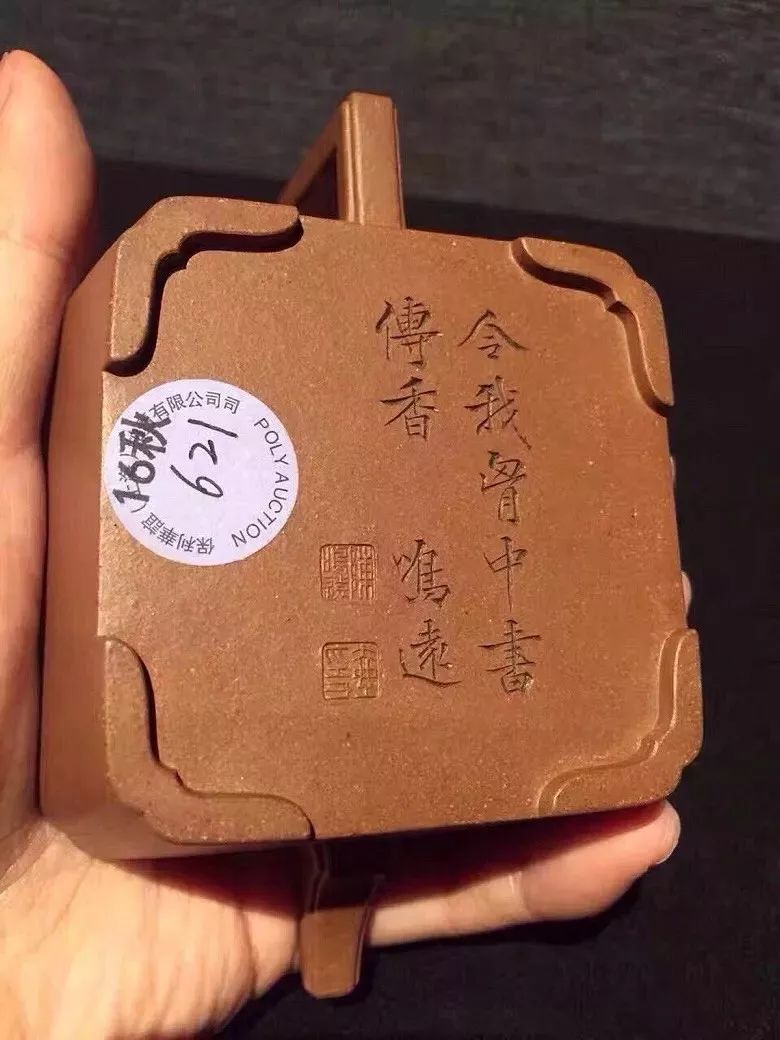 令我胷中書
傳香 鳴遠
保利華誼
有限公司司
POLY AUCTION
16秋
621